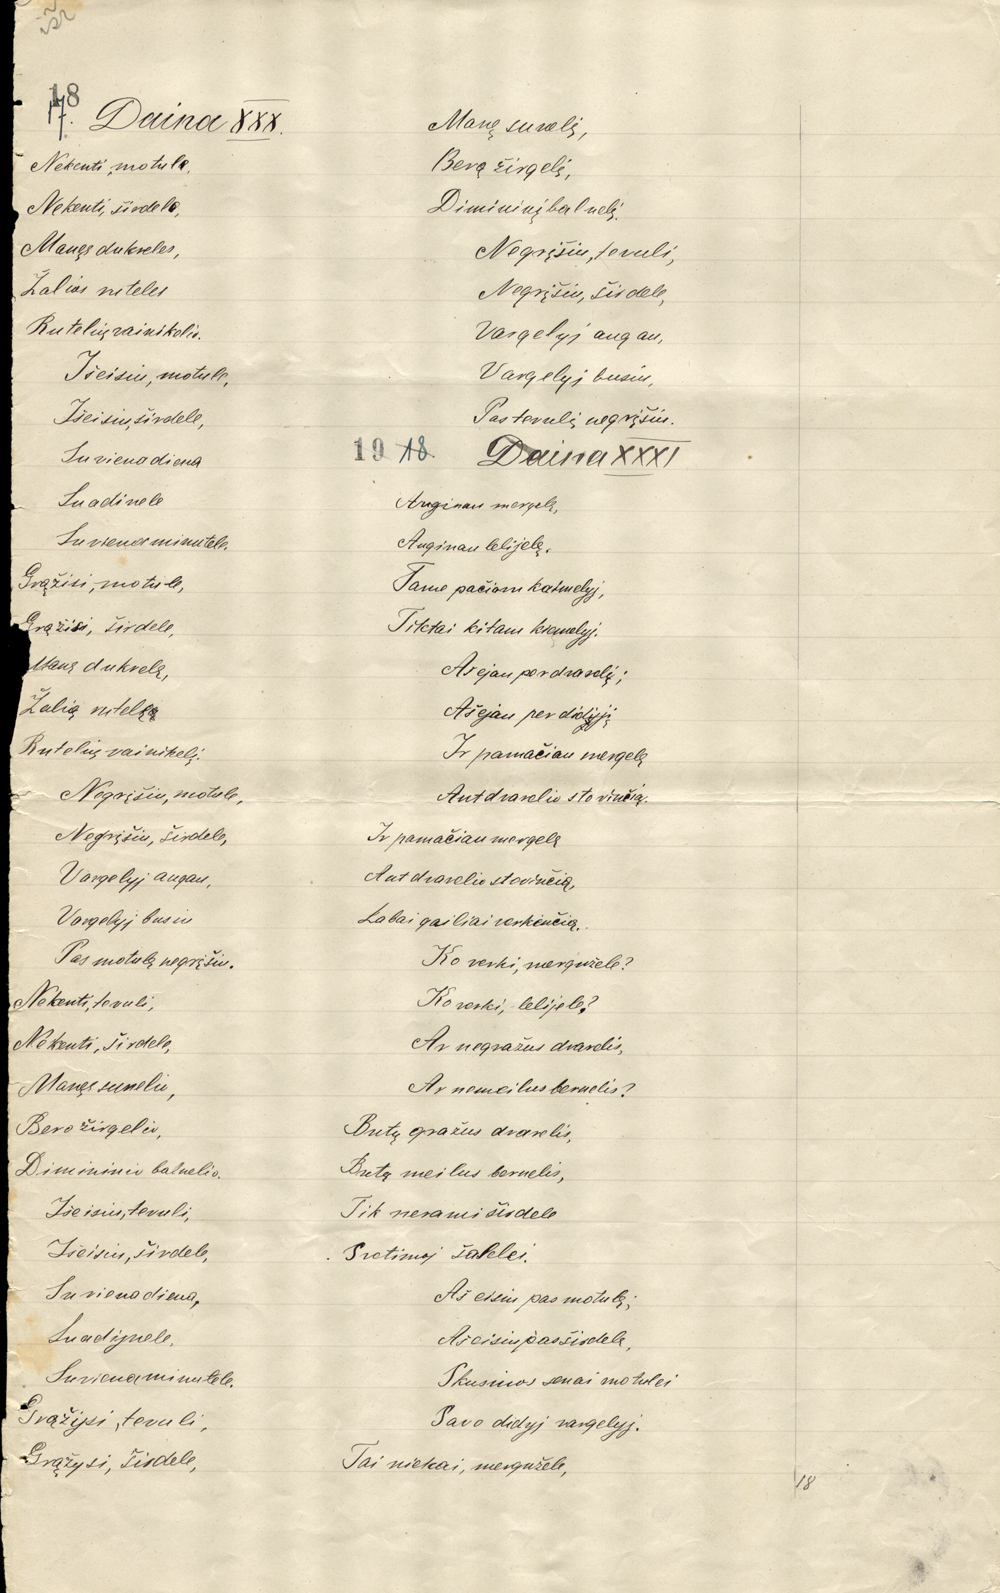 18
17. Daina XXX.
Nekenti, motule,
Nękenti, širdele,
Manęs dukreles,
Žalios ruteles
Rutelių vainikelis.
Išeisiu, motule,
Išeisiu, širdele,
Su viena diena
Su adinele
Su viena minutele.
Grąžisi, motule,
Grąžisi, širdele,
Manę dukrelę,
Žalią rutelęą
Rutelių vainikelį.
Negrįšiu, motule,
Negrįšiu, širdele,
Vargelyj augau,
Vargelyj busiu
Pas motulę negrįšiu.
Nekenti, tevuli,
Nekenti, širdele,
Manęs sunelio,
Bero žirgelio,
Dimininio balnelio.
Išeisiu, tevuli,
Išeisiu, širdele,
Su viena diena,
Su adynele,
Su viena minutele.
Grąžysi, tevuli,
Grąžysi, širdele,
Manę sunelį,
Berą žirgelį,
Dimininį balnelį.
Negrįšiu, tevuli,
Negrįšiu, širdele,
Vargelyj augau,
Vargelyj busiu,
Pas tevulį negrįšiu.
19 18. Daina XXXI
Auginau mergelę,
Auginau lelijelę.
Tame pačiam kaimelyj,
Tiktai kitam kiemelyj.
Aš ejau per dvarelį;
Aš ejau per didįjį
Ir pamačiau mergelę
Ant dvarelio stovinčią.
Ir pamačiau mergelę
Ant dvarelio stovinčią,
Labai gailiai verkenčią.
Ko verki, mergužele?
Ko verki, lelijele?
Ar negražus dvarelis,
Ar nemeilus bernelis?
Butų gražus dvarelis,
Butų meilus bernelis,
Tik nerami širdele
Svetimoj šalelei.
Aš eisiu pas motulę;
Aš eisiu pas širdelę,
Skusiuos senai motulei
Savo didyj vargelyj.
Tai niekai, mergužele,
18